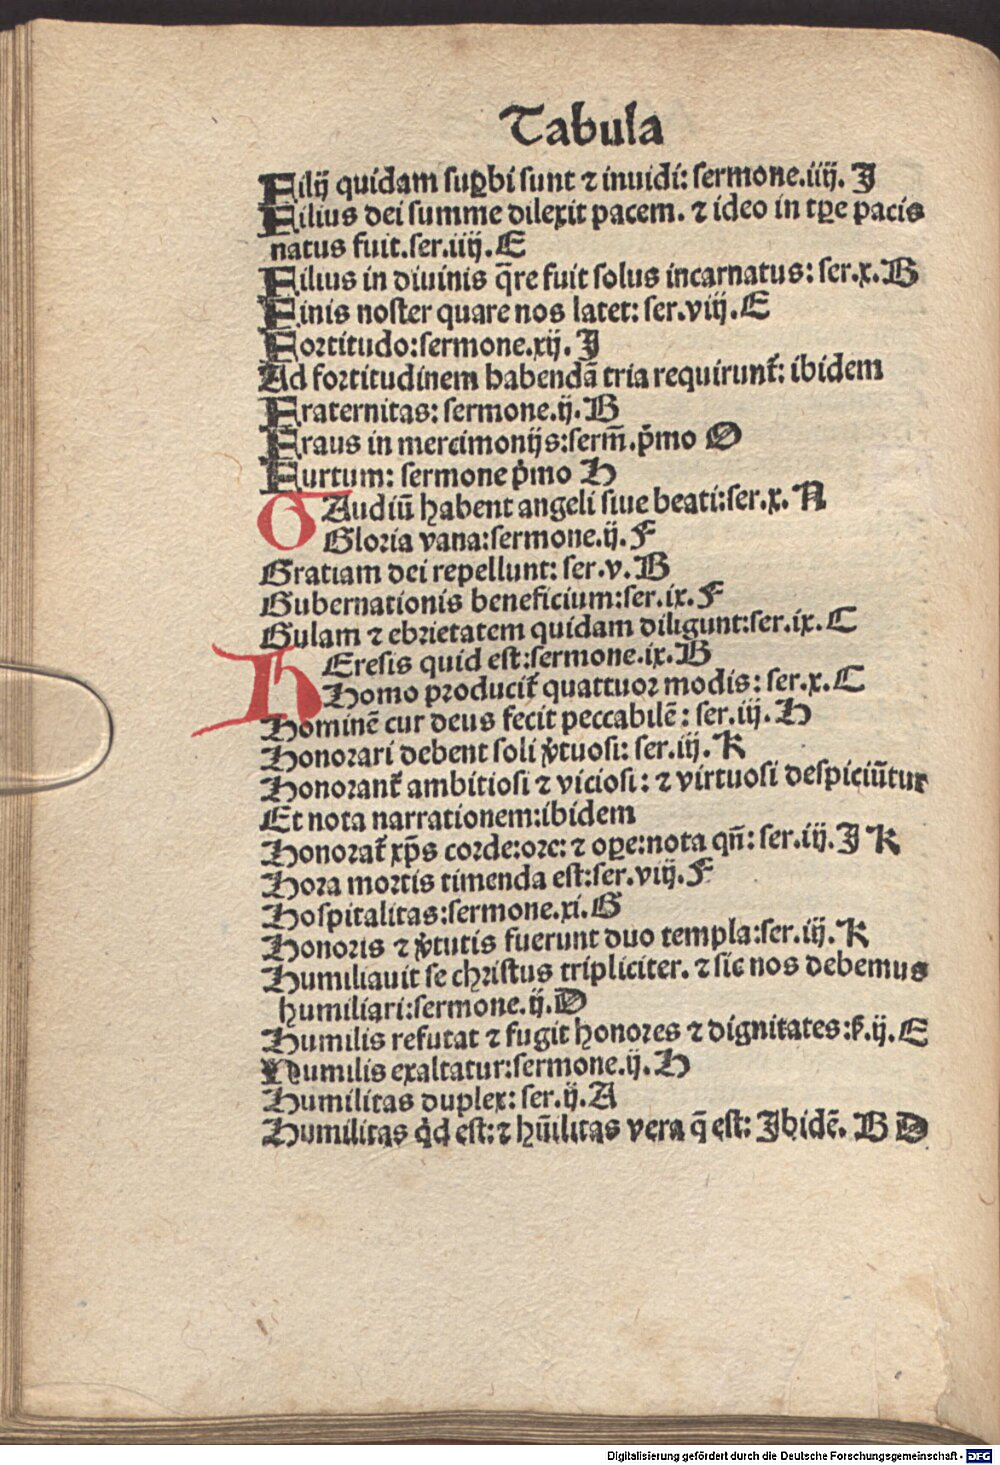 Tabula
Filij quidam suꝑbi sunt ⁊ inuidi: sermone.iiij. J
Filius dei summe dilexit pacem. ⁊ ideo in tꝑe pacis
natus fuit.ser.iiij.E
Filius in diuinis q̄re fuit solus incarnatus: ser.x.B
Finis noster quare nos latet: ser.viij.E
Fortitudo:sermone.xij. J
Ad fortitudinem habendā tria requirunt᷑: ibidem
Fraternitas: sermone.ij.B
Fraus in mercimonijs:serm̄.p̄mo O
Furtum: sermone p̄mo H
GAudiū habent angeli siue beati:ser.x. N
Gloria vana:sermone.ij.F
Gratiam dei repellunt: ser.v.B
Gubernationis beneficium:ser.ix.F
Gulam ⁊ ebrietatem quidam diligunt:ser.ix.C
hEresis quid est:sermone.ix.B
Homo producit᷑ quattuor modis: ser.x.C
Hominē cur deus fecit peccabilē: ser.iij.H
Honorari debent soli v̓tuosi: ser.iij.K
Honorant᷑ ambitiosi ⁊ viciosi: ⁊ virtuosi despiciūtur
Et nota narrationem:ibidem
Honorat᷑ xp̄s corde:ore: ⁊ oꝑe:nota qn̄: ser.iij.J K
Hora mortis timenda est:ser.viij.F
Hospitalitas:sermone.xi.G
Honoris ⁊ v̓tutis fuerunt duo templa:ser.iij.K
Humiliauit se christus tripliciter. ⁊ sic nos debemus
humiliari:sermone.ij.D
Humilis refutat ⁊ fugit honores ⁊ dignitates:ẜ.ij.E
Humilis exaltatur:sermone.ij.H
Humilitas duplex: ser.ij.A
Humilitas qd̓ est:⁊ hūilitas vera q̄ est: Ibidē. B D
Digitalisierung gefördert durch die Deutsche Forschungsgemeinschaft - DFG